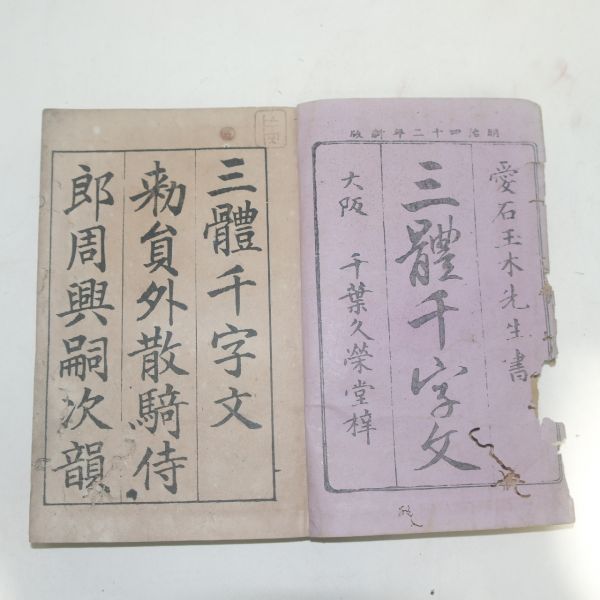 明治四十二年新版
愛石玉木先生書
三體千字文
大阪 千葉久榮堂梓
三體千字文
勑貟外散騎侍
郎周興嗣次韻